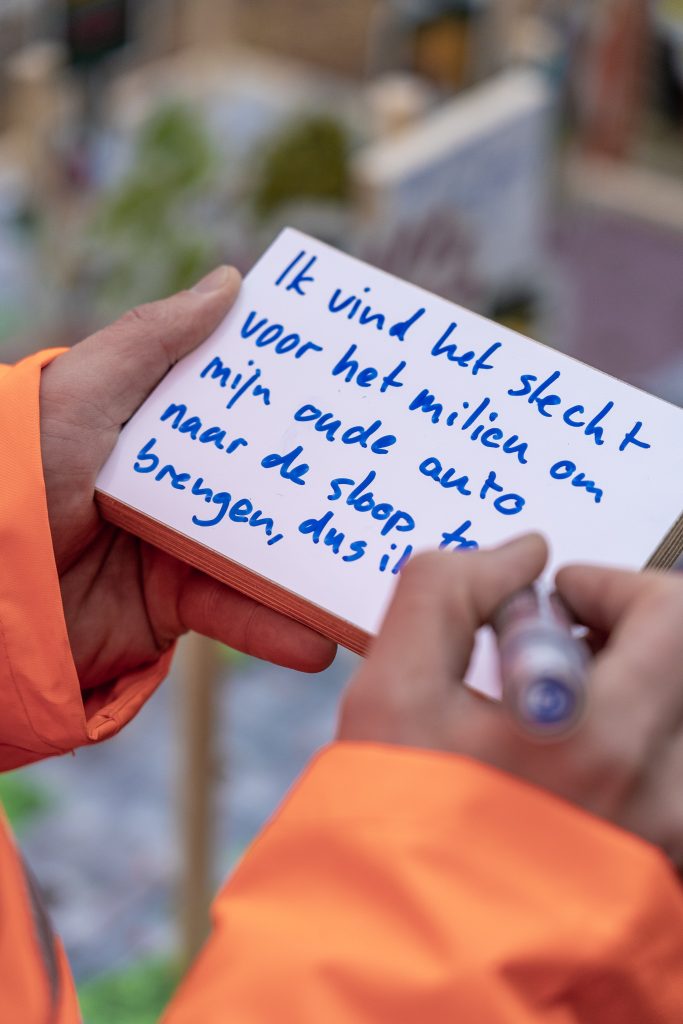 Ik vind het slecht
voor het milieu om
mijn oude auto
naar de sloop te
brengen, dus ik